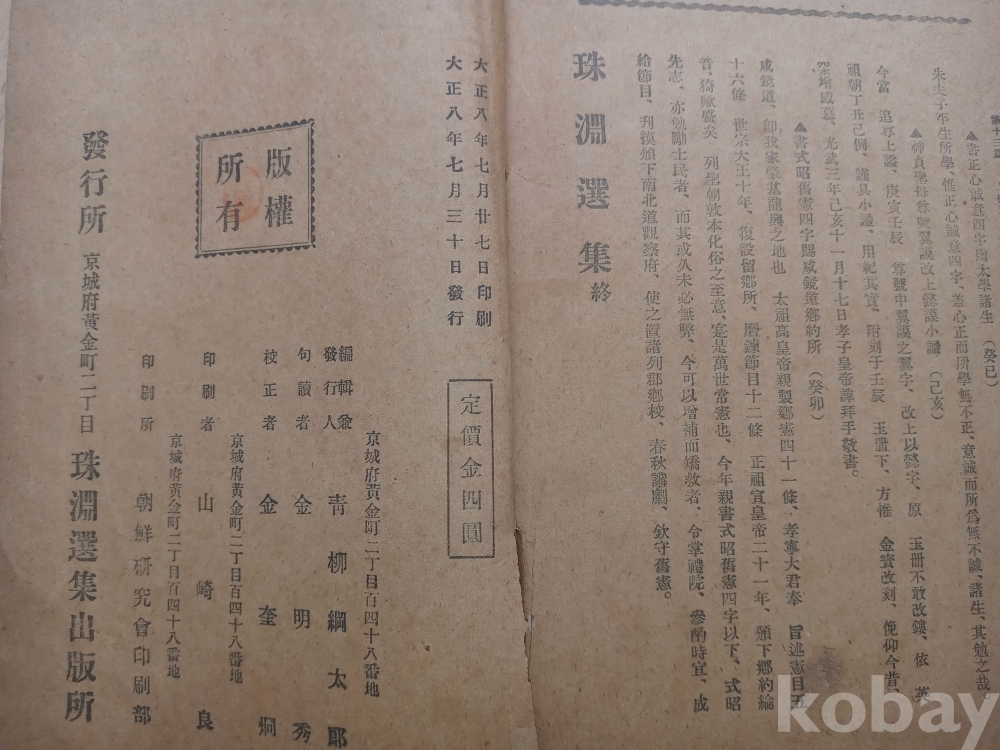 ▲書正心誠意四字賜太學諸生 (癸巳)
朱夫子平生所學、惟正心誠意四字、盖心正而所學無不正、意誠而所爲無不誠、諸生、其勉之哉、
▲神貞聖母尊號翼謨改上懿謨小識 (己亥)
今當 追尊上謚、庚寅壬辰 尊號中翼謨之翼字、改上以懿字、原 玉冊不敢改鏤、依 英
祖朝丁丑己例、謹具小識、用紀其實、附刻于壬辰 玉冊下、方惟 金寶改刻、俛仰今昔、
增感慕、光武三年己亥十一月十七日孝子皇帝諱拜手敬書。
▲書式昭舊憲四字賜咸鏡道鄉約所 (癸卯)
咸鏡道、卽我家肇基龍興之地也 太祖高皇帝親製鄉憲四十一條、孝寧大君奉 旨述憲目五
十六條 世宗大王十年、復設留鄉所、磨鍊節目十二條 正祖宣皇帝二十一年、頒下鄉約綸
音、猗歟盛矣 列聖朝敦本化俗之至意、寔是萬世常憲也、今年親書式昭舊憲四字以下、式昭
先志、亦勉勵士民者、而其或久未必無弊、今可以增補而矯救者、令掌禮院、參酌時宜、成
給節目、刋摸頒下南北道觀察府、使之置諸列郡鄉校、春秋講劘、欽守舊憲。
珠淵選集終
大正八年七月廿七日印刷
大正八年七月三十日發行
定價金四圓
版權
所有
京城府黃金町二丁目百四十八番地
編輯兼
發行人 靑柳綱太郎
句讀者 金明秀
校正者 金奎炯
京城府黃金町二丁目百四十八番地
印刷者 山崎良
京城府黃金町二丁目百四十八番地
印刷所 朝鮮研究會印刷部
發行所 京城府黃金町二丁目 珠淵選集出版所
kobay